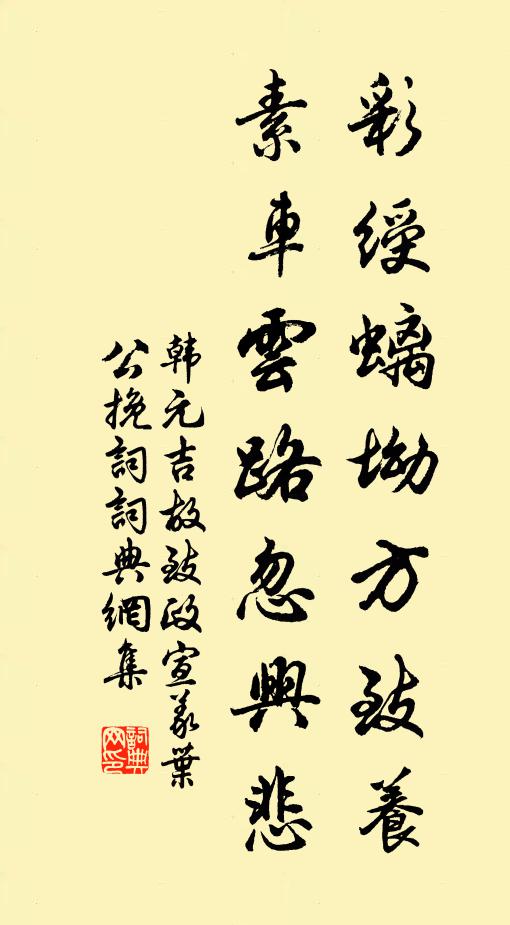 彩綬螭坳方致養
素車雲路忽興悲
韩元吉故致政宣义葉
公挽詞詞典網集
詞典
网印